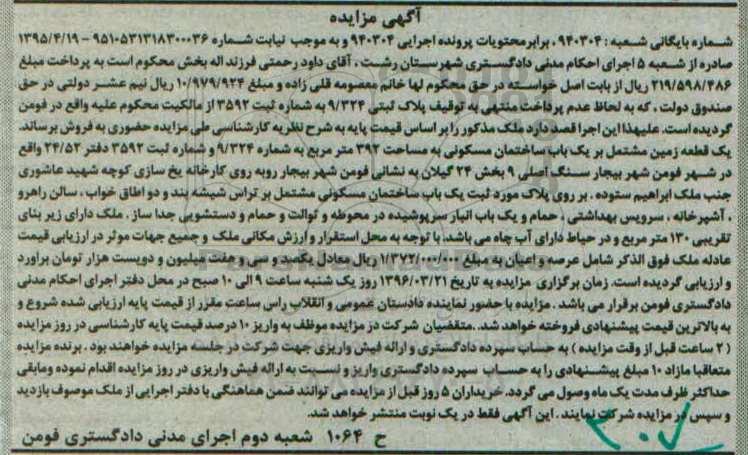 آگهی مزایده
شماره بایگانی شعبه : ۹۴۰۳۰۴ ، برابر محتویات پرونده اجرایی ۹۴۰۳۰۴ و به موجب نیابت شماره ۹۵۱۰۵۳۱۳۱۸۳۰۰۰۳۶ – ۱۳۹۵/۴/۱۹
صادره از شعبه ۵ اجرای احکام مدنی دادگستری شهرستان رشت ، آقای داود رحمتی فرزند اله بخش محکوم است به پرداخت مبلغ
۲۱۹/۵۹۸/۴۸۶ ریال از بابت اصل خواسته در حق محکوم لها خانم معصومه قلی زاده و مبلغ ۱۰/۹۷۹/۹۲۴ ریال نیم عشر دولتی در حق
صندوق دولت ، که به لحاظ عدم پرداخت منتهی به توقیف پلاک ثبتی ۹/۳۲۴ به شماره ثبت ۳۵۹۲ از مالکیت محکوم علیه واقع در فومن
گردیده است. علیهذا این اجرا قصد دارد ملک مذکور را بر اساس قیمت پایه به شرح نظریه کارشناسی طی مزایده حضوری به فروش برساند.
یک قطعه زمین مشتمل بر یک باب ساختمان مسکونی به مساحت ۳۹۲ متر مربع به شماره ۹/۳۲۴ و شماره ثبت ۳۵۹۲ دفتر ۲۴/۵۲ واقع
در شهر فومن شهر بیجار سنگ اصلی ۹ بخش ۲۴ گیلان به نشانی فومن شهر بیجار روبه روی کارخانه یخ سازی کوچه شهید عاشوری
جنب ملک ابراهیم ستوده . بر روی پلاک مورد ثبت یک باب ساختمان مسکونی مشتمل بر تراس شیشه بند و دو اطاق خواب ، سالن راهرو
، آشپرخانه ، سرویس بهداشتی ، حمام و یک باب انبار سرپوشیده در محوطه و توالت و حمام و دستشویی جدا ساز . ملک دارای زیر بنای
تقریبی ۱۳۰ متر مربع و در حیاط دارای آب چاه می باشد. با توجه به محل استقرار و ارزش مکانی ملک و جمیع جهات موثر در ارزیابی قیمت
عادله ملک فوق الذکر شامل عرصه و اعیان به مبلغ ۱/۳۷۲/۰۰۰/۰۰۰ ریال معادل یکصد و سی و هفت میلیون و دویست هزار تومان براورد
و ارزیابی گردیده است. زمان برگزاری مزایده به تاریخ ۱۳۹۶/۰۳/۲۱ روز یک شنبه ساعت ۹ الی ۱۰ صبح در محل دفتر اجرای احکام مدنی
دادگستری فومن برقرار می باشد . مزایده با حضور نماینده دادستان عمومی و انقلاب راس ساعت مقرر از قیمت پایه ارزیابی شده شروع و
به بالاترین قیمت پیشنهادی فروخته خواهد شد .متقضیان شرکت در مزایده موظف به واریز ۱۰ درصد قیمت پایه کارشناسی در روز مزایده
( ۲ ساعت قبل از وقت مزایده ) به حساب سپرده دادگستری و ارائه فیش واریزی جهت شرکت در جلسه مزایده خواهند بود . برنده مزایده
متعاقبا مازاد ۱۰ مبلغ پیشنهادی را به حساب سپرده دادگستری واریز و نسبت به ارائه فیش واریزی در روز مزایده اقدام نموده و مابقی
حداکثر ظرف مدت یک ماه وصول می گردد. خریداران ۵ روز قبل از مزایده می توانند ضمن هماهنگی با دفتر اجرایی از ملک موصوف بازدید
و سپس در مزایده شرکت نمایند . این آگهی فقط در یک نوبت منتشر خواهد شد.
ح ۱۰۶۴ شعبه دوم اجرای مدنی دادگستری فومن